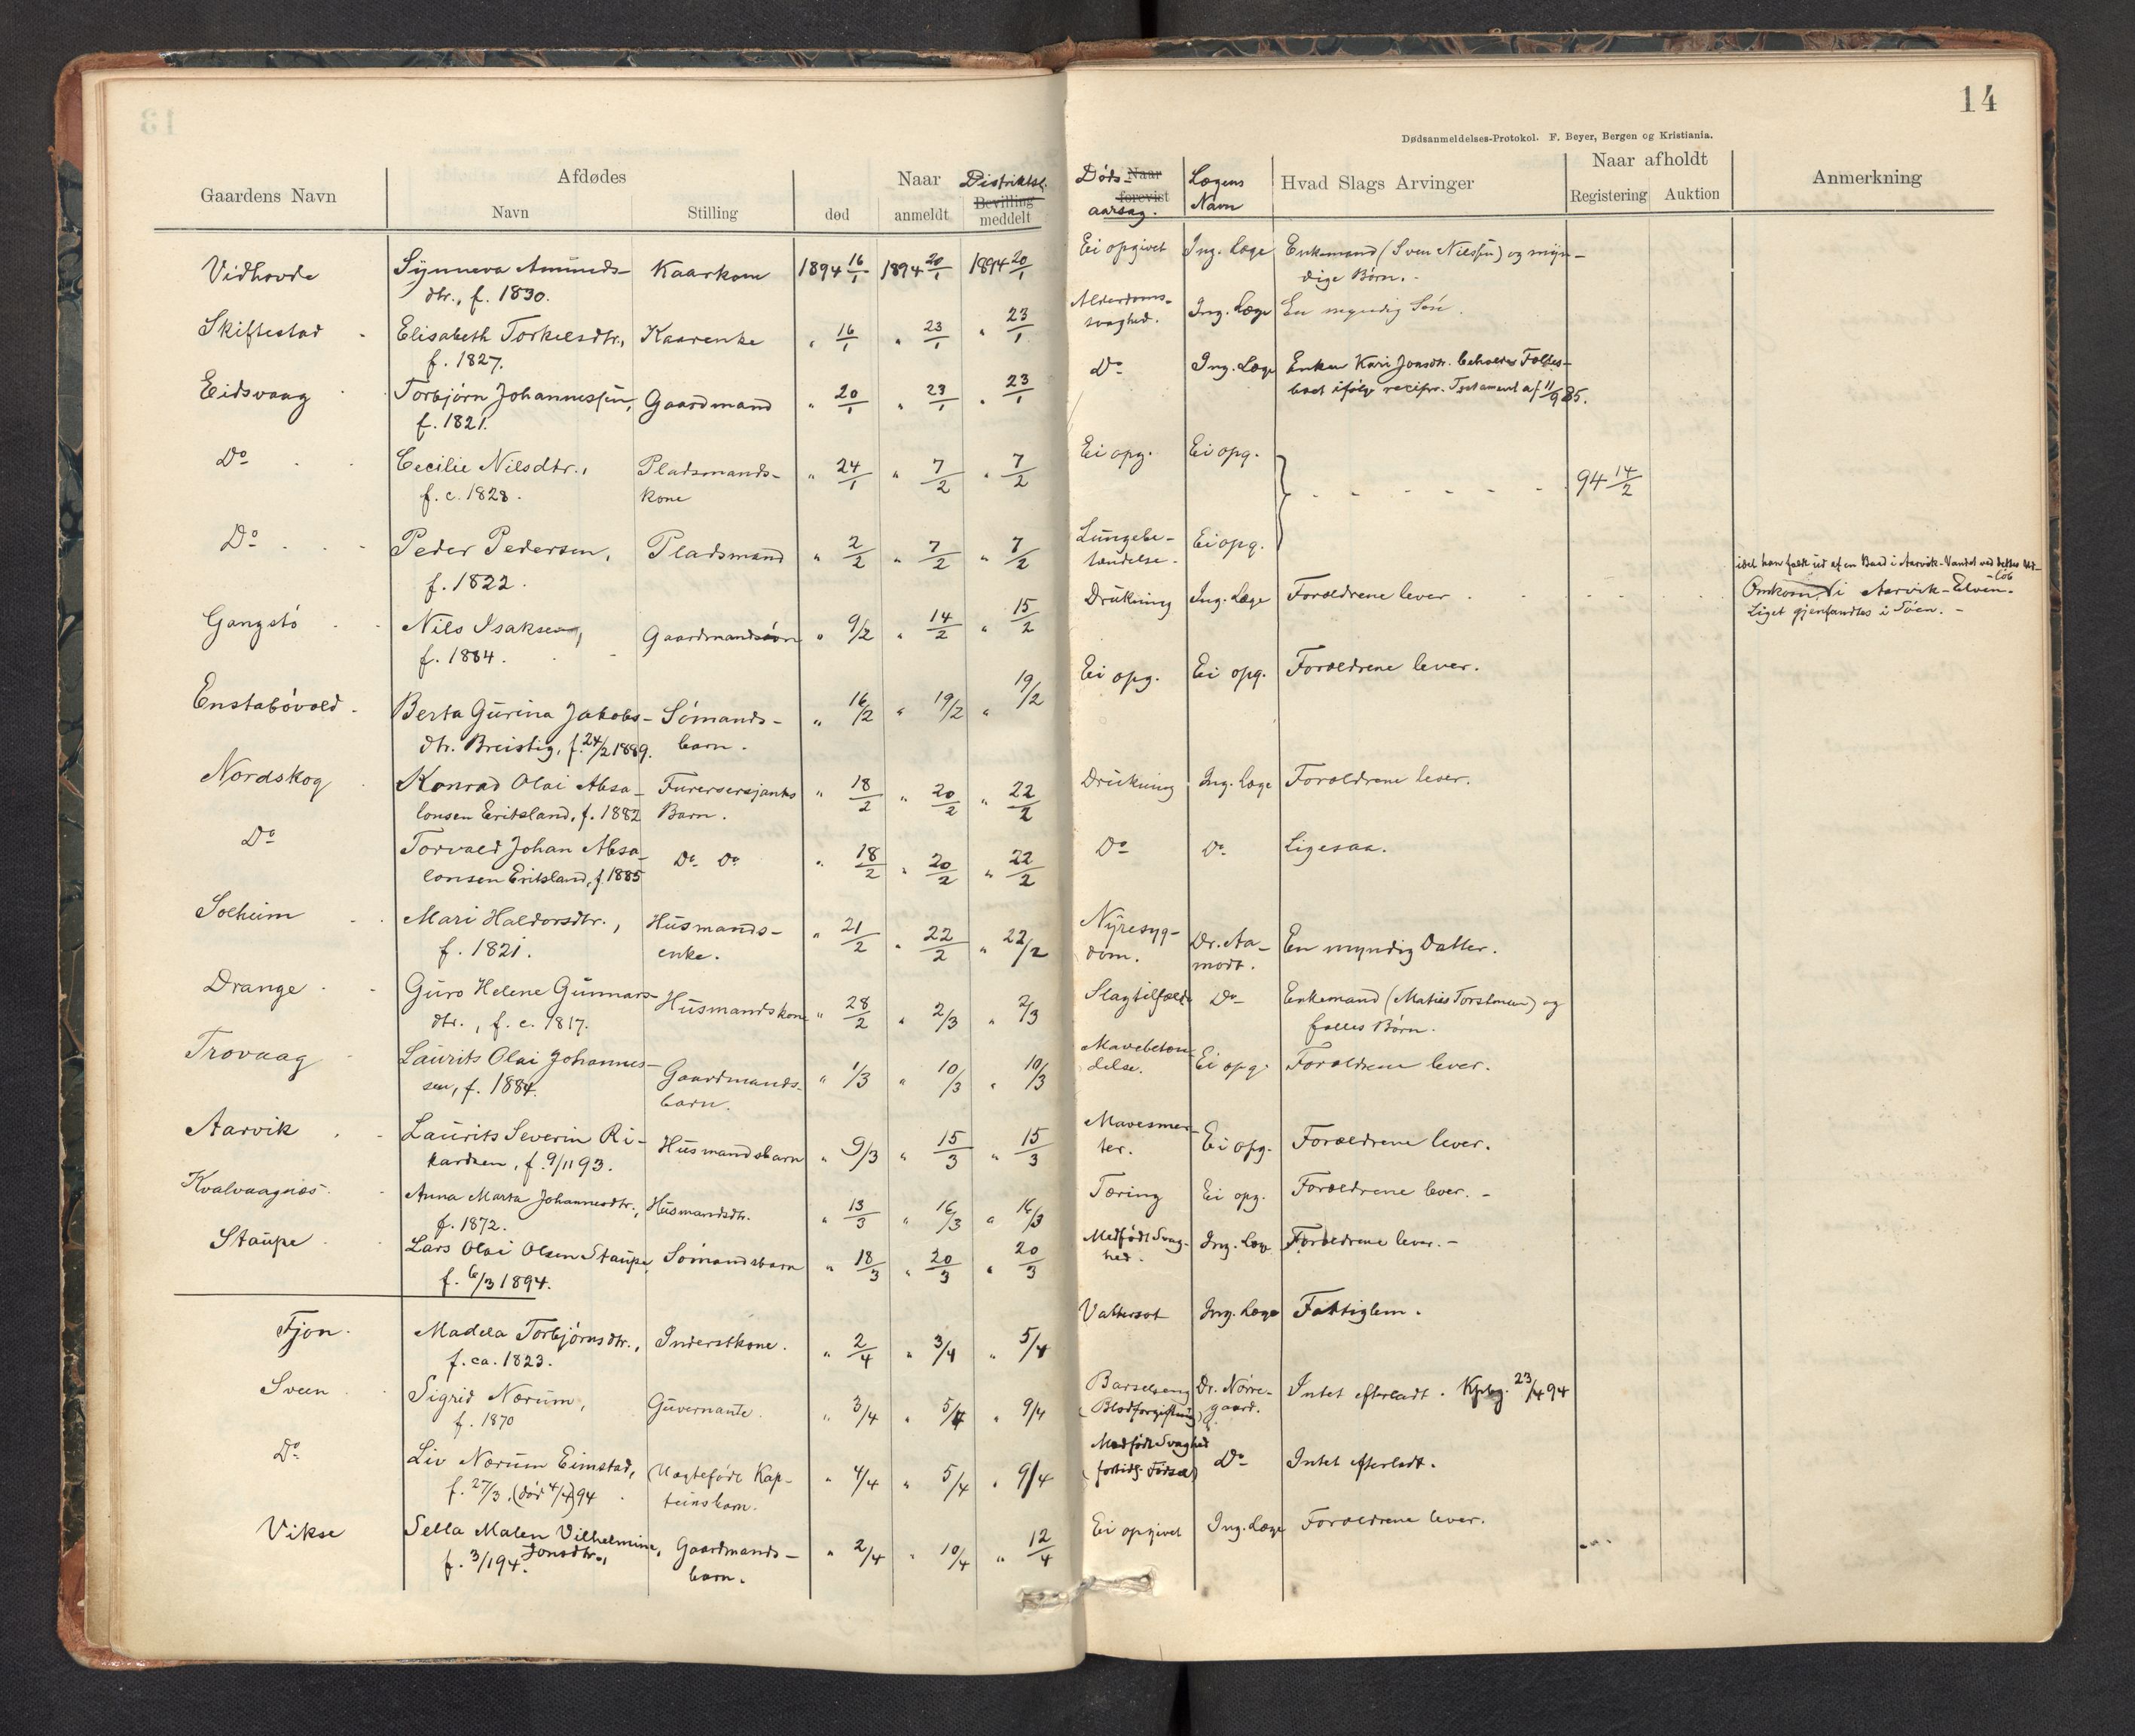 14
Dødsanmeldelses-Protokol. F. Beyer, Bergen og Kristiania.
Gaardens Navn
Afdødes
Navn
Stilling
Naar
død
anmeldt
Distriktsl.
Bevilling
meddelt
Døds- Naar
forevist
aarsag.
Lægens
Navn
Hvad Slags Arvinger
Naar afholdt
Registering
Auktion
Anmerkning
Vidhovde Synneva Amunds- Kaarkone 1894 16/1 1894 20/1 1894 20/1 Ei opgivet Ing. Læge Enkemand (Sven Nilssen) og myn-
dtr., f. 1830. dige Børn.
Skiftestad Elisabeth Torkelsdtr., Kaarenke " 16/1 " 23/1 " 23/1 Alderdoms- Ing. Læge En myndig Søn.
f. 1827. svaghed.
Eidsvaag Torbjørn Johannessen, Gaardmand " 20/1 " 23/1 " 23/1 Do Ing. Læge Enken Kari Jonsdtr. beholder Fælles-
f. 1821. boet ifølge recipr. Testament af 11/9 85.
Do Cecilie Nilsdtr., Pladsmands- " 24/1 " 7/2 " 7/2 Ei opg. Ei opg. 94 14/2
f. c. 1828. kone
Do Peder Pedersen, Pladsmand " 2/2 " 7/2 " 7/2 Lungebe- Ei opg.
f. 1822. tændelse.
idet han faldt ud af en Baad i Aarvik-Vandet ved dettes Ud-
løb
Gangstø Nils Isaksen, Gaardmandssøn " 9/2 " 14/2 " 15/2 Drukning Ing. Læge Forældrene lever Omkom i Aarvik-Elven.
f. 1884. Liget gjenfandtes i Søen.
Enstabøvold Berta Gurina Jakobs- Sømands- " 16/2 " 19/2 " 19/2 Ei opg. Ei opg. Forældrene lever.
dtr. Breistig, f. 24/2 1889. barn.
Nordskog Konrad Olai Absa- Furersersjants " 18/2 " 20/2 " 22/2 Drukning Ing. Læge Forældrene lever.
lonsen Eritsland, f. 1882 Barn.
Do Torvald Johan Absa- Do Do " 18/2 " 20/2 " 22/2 Do Do Ligesaa.
lonsen Eritsland, f. 1885
Solheim Mari Haldorsdtr., Husmands- " 21/2 " 22/2 " 22/2 Nyresyg- Dr. Aa- En myndig Datter.
f. 1821. enke. dom. modt.
Drange Guro Helene Gunnars- Husmandskone " 28/2 " 2/3 " 2/3 Slagtilfælde Do Enkemand (Maties Torstensen) og
dtr., f. c. 1817. fælles Børn.
Trovaag Laurits Olai Johannes- Gaardmands- " 1/3 " 10/3 " 10/3 Mavebetæn- Ei opg. Forældrene lever.
sen, f. 1884. barn. delse.
Aarvik Laurits Severin Ri- Husmandsbarn " 9/3 " 15/3 " 15/3 Mavesmer- Ei opg. Forældrene lever.
kardsen, f. 9/11 93. ter.
Kvalvaagnæs Anna Marta Johannesdtr., Husmandsdtr. " 13/3 " 16/3 " 16/3 Tæring Ei opg. Forældrene lever.
f. 1872.
Staupe Lars Olai Olsen Staupe, Sømandsbarn " 18/3 " 20/3 " 20/3 Medfødt Svag- Ing. Læge Forældrene lever.
f. 6/3 1894. hed.
Fjon. Madela Torbjørnsdtr., Inderstkone. " 2/4 " 3/4 " 5/4 Vattersot Ing. Læge Fattiglem.
f. ca. 1823.
Sveen Sigrid Nærum, Guvernante. " 3/4 " 5/4 " 9/4 Barselseng Dr. Nørre- Intet efterladt. Kpbg. 23/4 94
f. 1870 (Blodforgiftning) gaard.
Do Liv Nærum Eimstad, Uægtefødt Kap- " 4/4 " 5/4 " 9/4 Medfødt Svaghed Do Intet efterladt.
f. 27/3. (død 4/4) 94 teinsbarn. (fortidlg. Fødsel)
Vikse Sella Malen Vilhelmine Gaardmands- " 2/4 " 10/4 " 12/4 Ei opgivet Ing. Læge Forældrene lever.
Jonsdtr.,
f. 3/1 94. barn.